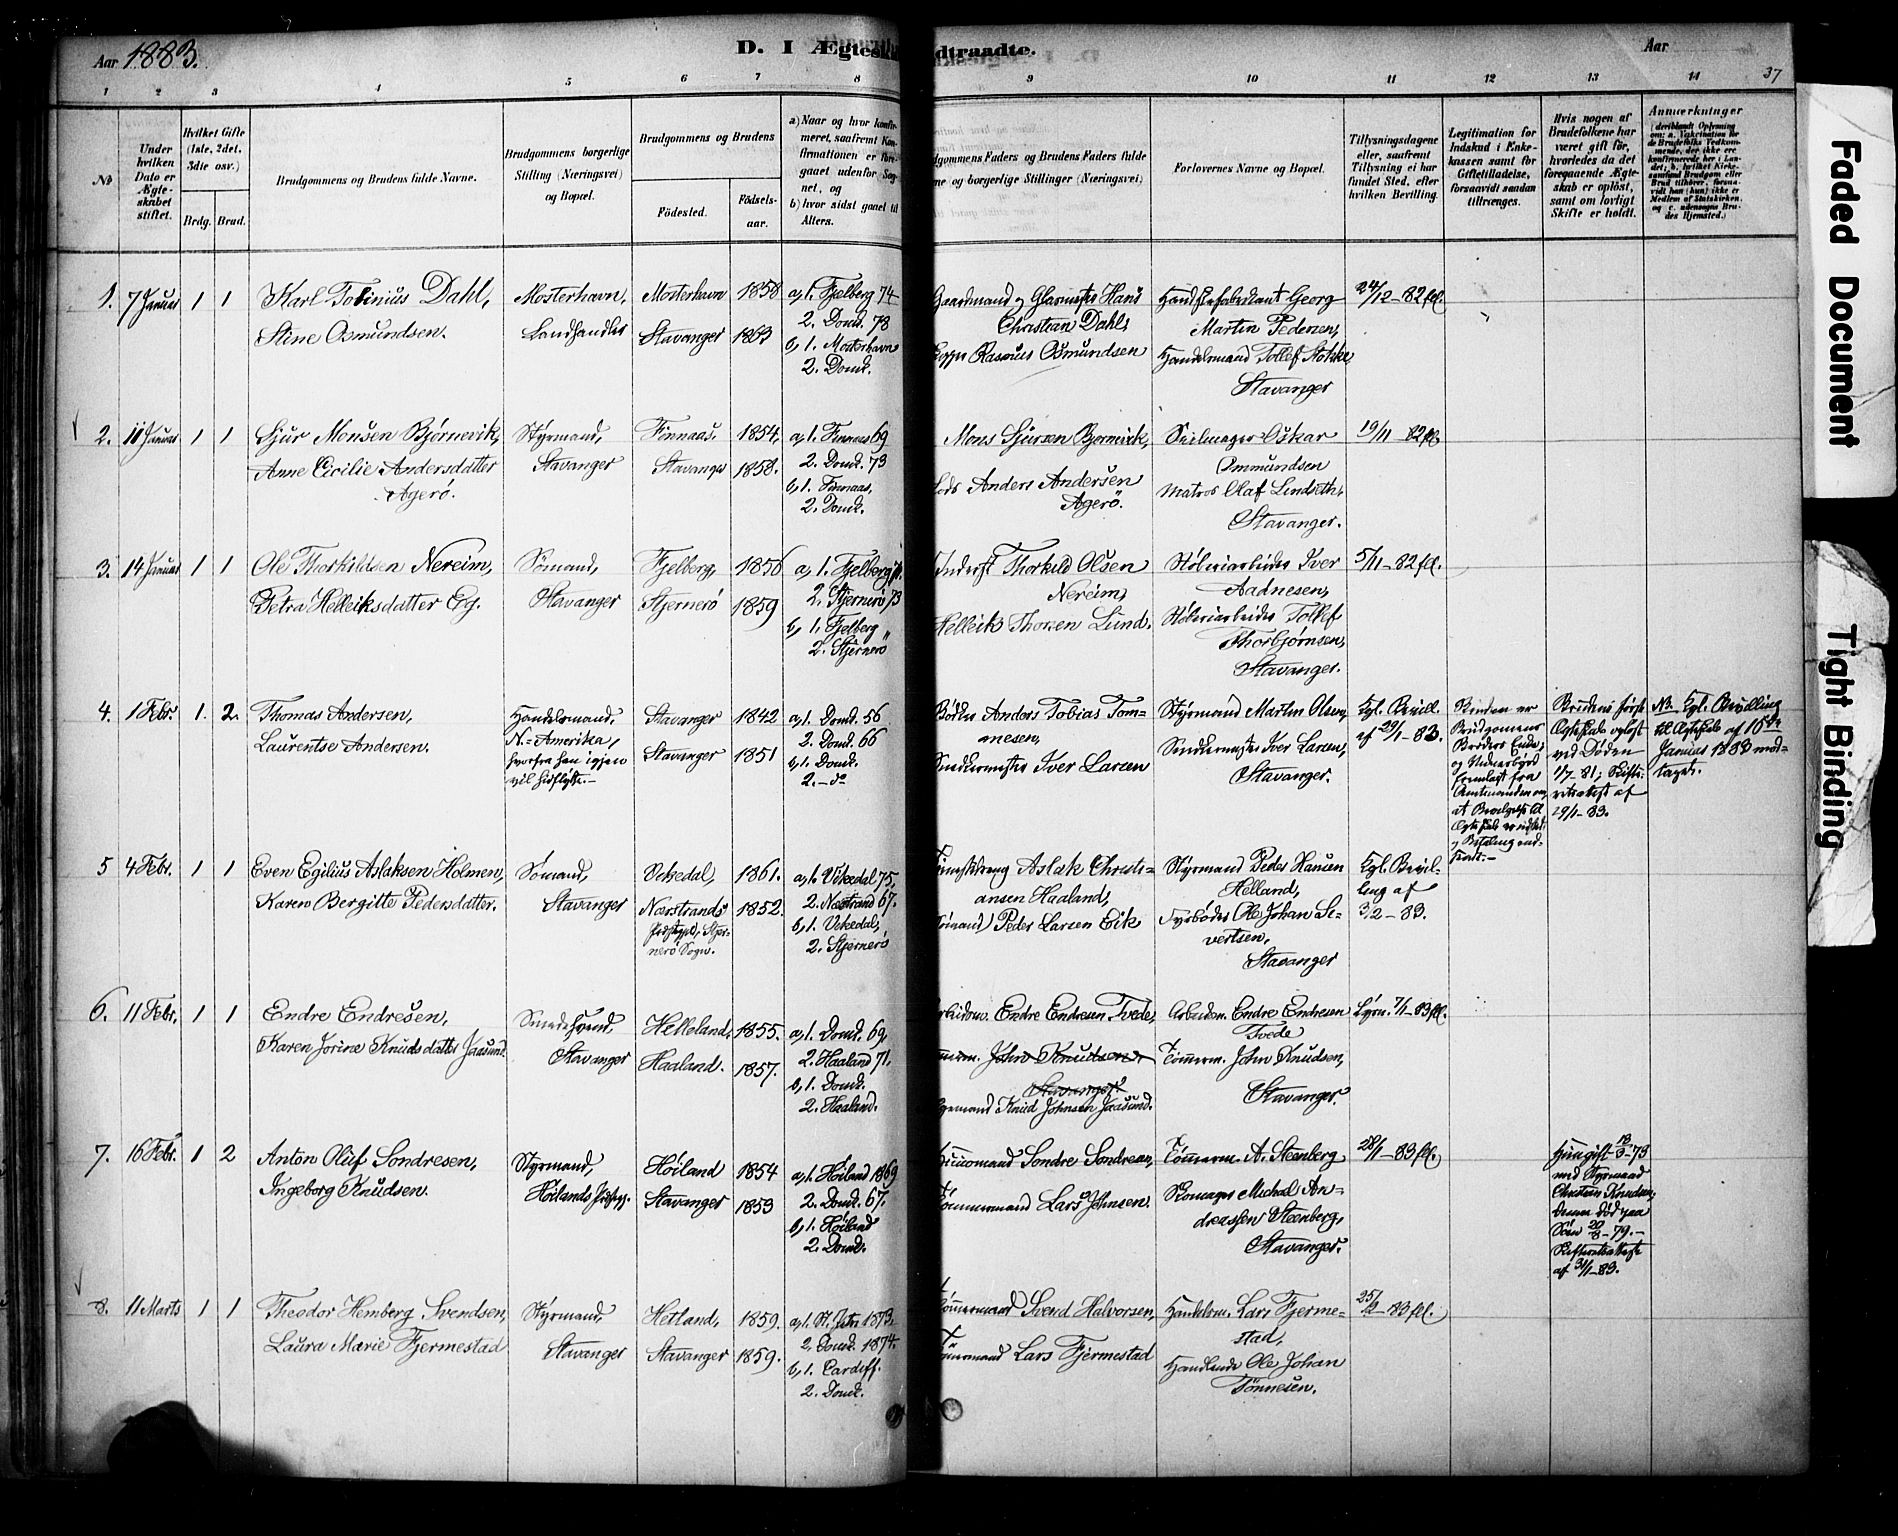 Aar 1883.
D. I Ægtesk
dtraadte.
Aar
37
1 2 3 4 5 6 7 8 9 10 11 12 13 14
No
Under hvilken Dato er Ægteskabet stiftet.
Hvilket Gifte (1ste, 2det, 3die osv.)
Brdg. Brud.
Brudgommens og Brudens fulde Navne.
Brudgommens borgerlige Stilling (Næringsvei) og Bopæl.
Brudgommens og Brudens
Fødested.
Fødselsaar.
a) Naar og hvor konfirmeret, saafremt Konfirmationen er foregaaet udenfor Sognet, og
b) hvor sidst gaaet til Alters.
dgommens Faders og Brudens Faders fulde
ne og borgerlige Stillinger (Næringsvei)
Forlovernes Navne og Bopæl.
Tillysningsdagene eller, saafremt Tillysning ei har fundet Sted, efter hvilken Bevilling.
Legitimation for Indskud i Enkekassen samt for Giftetilladelse, forsaavidt saadan tiltrænges.
Hvis nogen af Brudefolkene har været gift før, hvorledes da det foregaaende Ægteskab er opløst, samt om lovligt Skifte er holdt.
Anmærkninger
1. 7 Januar 1 1
Karl Tobinius Dahl,
Stine Osmundsen.
Mosterhavn,
Landhandler
Mosterhavn 1858
Stavanger 1863
a, 1. Fjelberg 74
2. Domk. 78
b, 1. Mosterhavn
2. Domk.
Gaardmand og Glarmester Hans
Christian Dahl,
Rasmus Osmundsen
Georg
Martin Pedersen,
Handelsmand Tollef Stokke,
Stavanger
24/12-82 fl.
2. 11 Januar 1 1
Sjur Monsen Bjørnevik,
Anne Cicilie Andersdatter
Agerø.
Styrmand,
Stavanger
Finnaas, 1854.
Stavanger 1858.
a, 1. Finnaas 69
2. Domk. 73
b, 1. Finnaas,
2. Domk.
Mons Sjursen Bjørnevik,
Lods Anders Andersen
Agerø.
Seilmager Oskar
Ommundsen
Matros Olaf Lindseth,
Stavanger.
19/11-82 fl.
3. 14 Januar 1 1
Ole Thorkildsen Nereim,
Petra Helleiksdatter Eg.
Sømand,
Stavanger
Fjelberg, 1856
Stjernerø 1859
a, 1. Fjelberg
2. Stjernerø 73
b, 1. Fjelberg
2. Stjernerø
Inderst Thorkild Olsen
Nereim,
Helleik Thorsen Lund.
Støberiarbeider Iver
Aadnesen,
Støberiarbeider Tollef
Thorbjørnsen,
Stavanger.
5/11-82 fl.
4. 1 Febr. 1. 2.
Thomas Andersen,
Laurentse Andersen.
Handelsmand,
N.=Amerika,
hvorfra han igjen
vil hidflytte.-
Stavanger 1842
Stavanger 1851
a, 1. Domk. 56
2. Domk. 66
b, 1. Domk.
2. - do
Bødker Anders Tobias Tom-
mesen,
Snedkermester Iver Larsen
Styrmand Martin Olsen,
Snedkermester Iver Larsen,
Stavanger.
Kgl. Bevill.
af 29/1-83.
Bruden er
Brudgommens
Broders Enke,
og Vidnesbyrd
fremlagt fra
Amtmanden om,
at Bevilgelse til
Brudens første
Ægteskab opløst
ved Døden
1/7-81; Skifte-
retsattest af
29/1-83.
NB. Kgl. Bevilling
til Ægteskab af 16de
Januar 1883 mod-
taget.
5 4 Febr. 1 1
Even Egilius Aslaksen Holmen,
Karen Bergitte Pedersdatter.
Sømand,
Stavanger
Vikedal, 1861.
Nærstrands 1852.
Prdstgjd., Stjer-
nerø Sogn.
a, 1. Vikedal 75,
2. Nærstrand 67.
b, 1. Vikedal,
2. Stjernerø
Aslak Christi-
ansen Haaland,
Sømand Peder Larsen Eik
Styrmand Peder Hansen
Helland,
Fyrbøder Ole Johan Si-
vertsen,
Stavanger
Kgl. Bevil-
ling af
3/2-83.
6. 11 Febr. 1 1
Endre Endresen,
Karen Jorine Knudsdatter Jaasund.
Smedesvend,
Stavanger
Helleland, 1855.
Haaland. 1857.
a, 1. Domk. 69,
2. Haaland 71.
b, 1. Domk.
2. Haaland.
Arbeidsm. Endre Endresen Tvede,
Tømmerm. John Knudsen,
Stavanger
Knud Johnsen Jaasund.
Arbeidsm. Endre Endresen
Tvede
Tømmerm. John Knudsen,
Stavanger.
Lysn. 7/1-83 fl.
7. 16 Febr. 1 2
Anton Oluf Sondresen,
Ingeborg Knudsen.
Styrmand,
Høilands Prdstgj.
Høiland 1854
Stavanger 1853
a, 1. Høiland 1869
2. Domk. 67.
b, 1. Høiland
2. Domk.
Sondre Sondresen,
Tømmermand Lars Johnsen.
Tømmerm. A. Steenberg
Skomager Michal An-
dreassen Steenberg,
Stavanger.
28/1-83 fl.
Hun gift 18/3-73
med Styrmand
Christian Knudsen,
denne død paa
Søen 20/8-79.-
Skifteretsattest
af 31/1-83.
8. 11 Marts 1 1
Theodor Hemberg Svendsen,
Laura Marie Fjermestad
Styrmand,
Stavanger
Hetland, 1859.
Stavanger 1859.
a, 1. St. Petri 1873.
2. Domk. 1874.
b, 1. Cardiff.
2. Domk.
Tømmermand Svend Halvorsen,
Tømmermand Lars Fjermestad
Handelsm. Lars Fjerme-
stad,
Handlende Ole Johan
Tønnesen.
25/2-83 fl.
Faded Document
Tight Binding